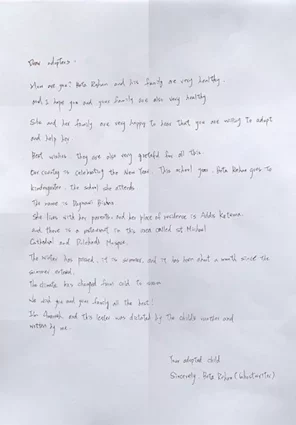 Dear adopters.
How are you? Hete Rohan and his family are very healthy.
and I hope you and your family are also very healthy
She and her family are very happy to hear that you are willing to adopt
and help her.
Best wishes. They are also very grateful for all this.
Our country is celebrating the New Year. This school year, Hete Rohan goes to
kindergarten. The school she attends
The name is Dagmawi Birhan
She lives with her parents, and her place of residence is Addis Ketema.
and there is a in this area called St Michael
Cathedral and
The winter has passed. It is summer, and it has been about a month since the
summer entered.
The climate has changed from cold to warm
We wish you and your family all the best!
I'm and this letter was dictated by the child's mother and
written by me.
Your adopted child
Sincerely, Hete Rohan (Ghostwriter)